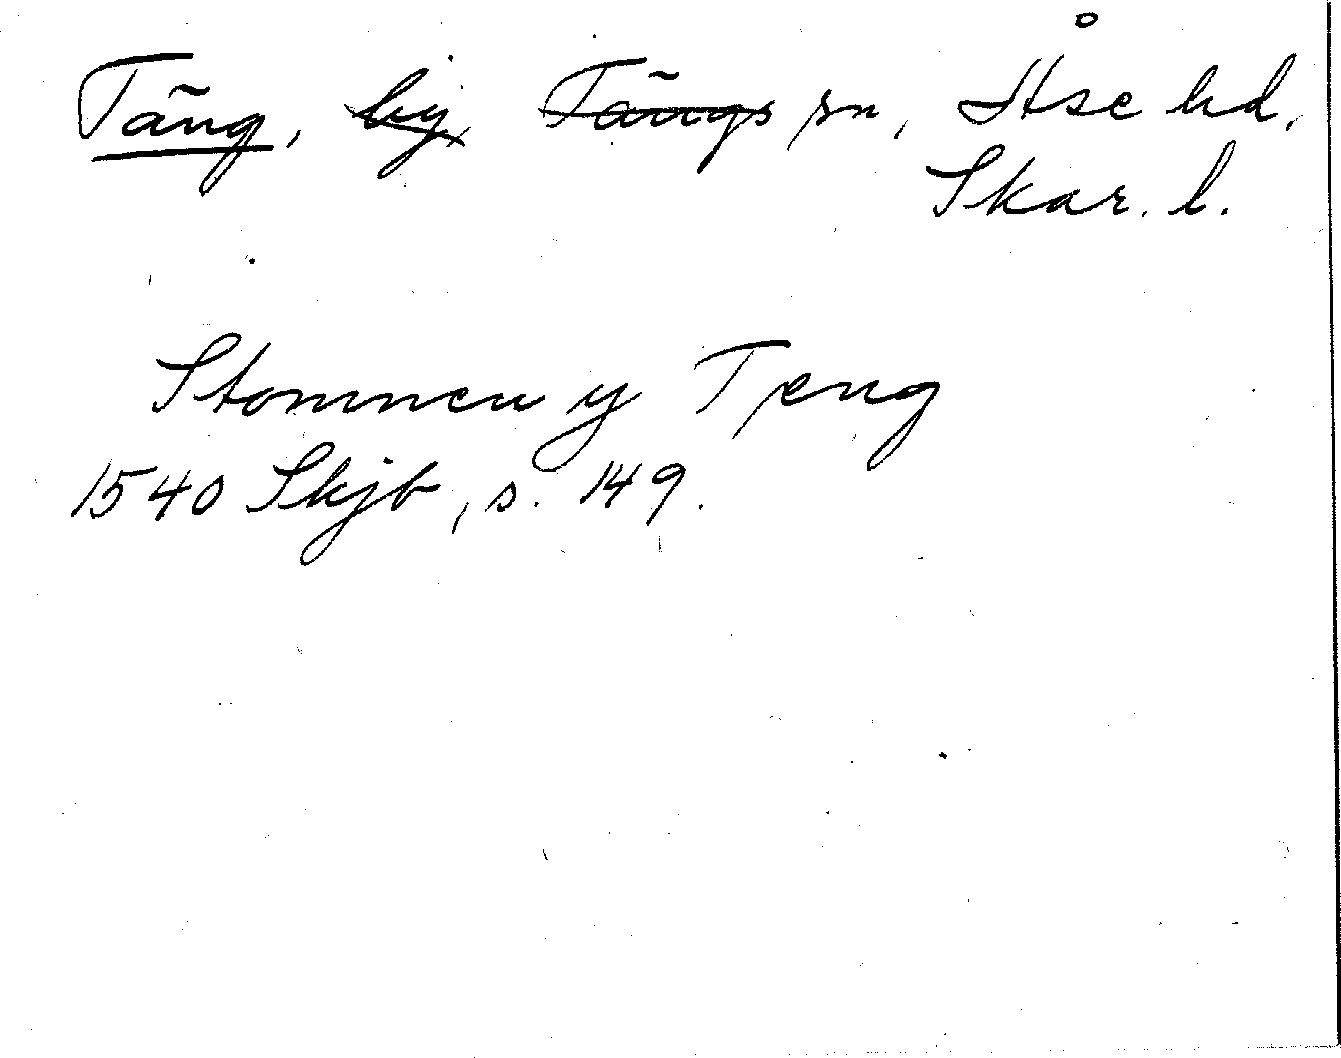 Täng, by Tängs sn, Åse hd,
Skar. l.
Stommen y Teng
1540 Skjb, s. 149.